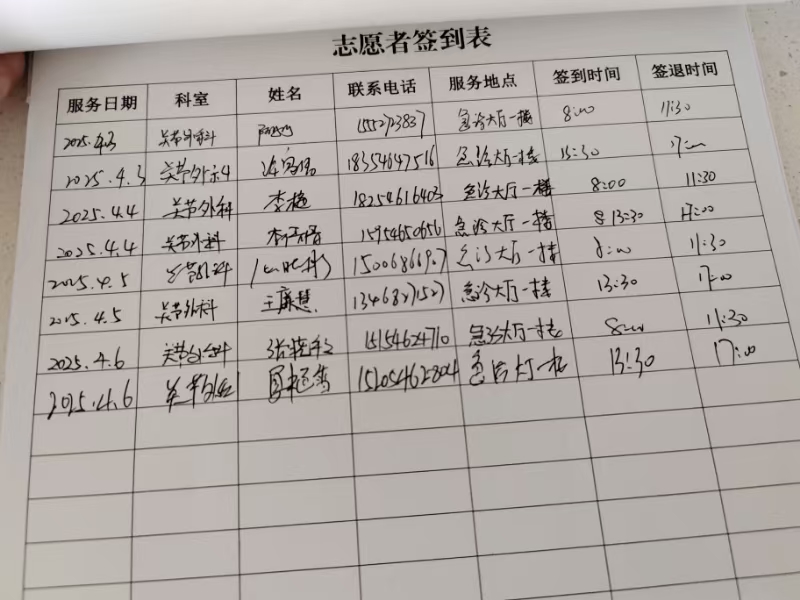 志愿者签到表
服务日期 科室 姓名 联系电话 服务地点 签到时间 签退时间
2025.4.3 关节外科 急诊大厅一楼 8:00 11:30
2025.4.3 关节外科 18354647516 急诊大厅一楼 13:30 17:00
2025.4.4 关节外科 李艳 18254616403 急诊大厅一楼 8:00 11:30
2025.4.4 关节外科 15954650656 急诊大厅一楼 13:30 17:00
2025.4.5 关节外科 急诊大厅一楼 8:00 11:30
2025.4.5 关节外科 王廉慧 13468271527 急诊大厅一楼 13:30 17:00
2025.4.6 关节外科 15154624710 急诊大厅一楼 8:00 11:30
2025.4.6 关节外科 15205462804 急诊大厅一楼 13:30 17:00